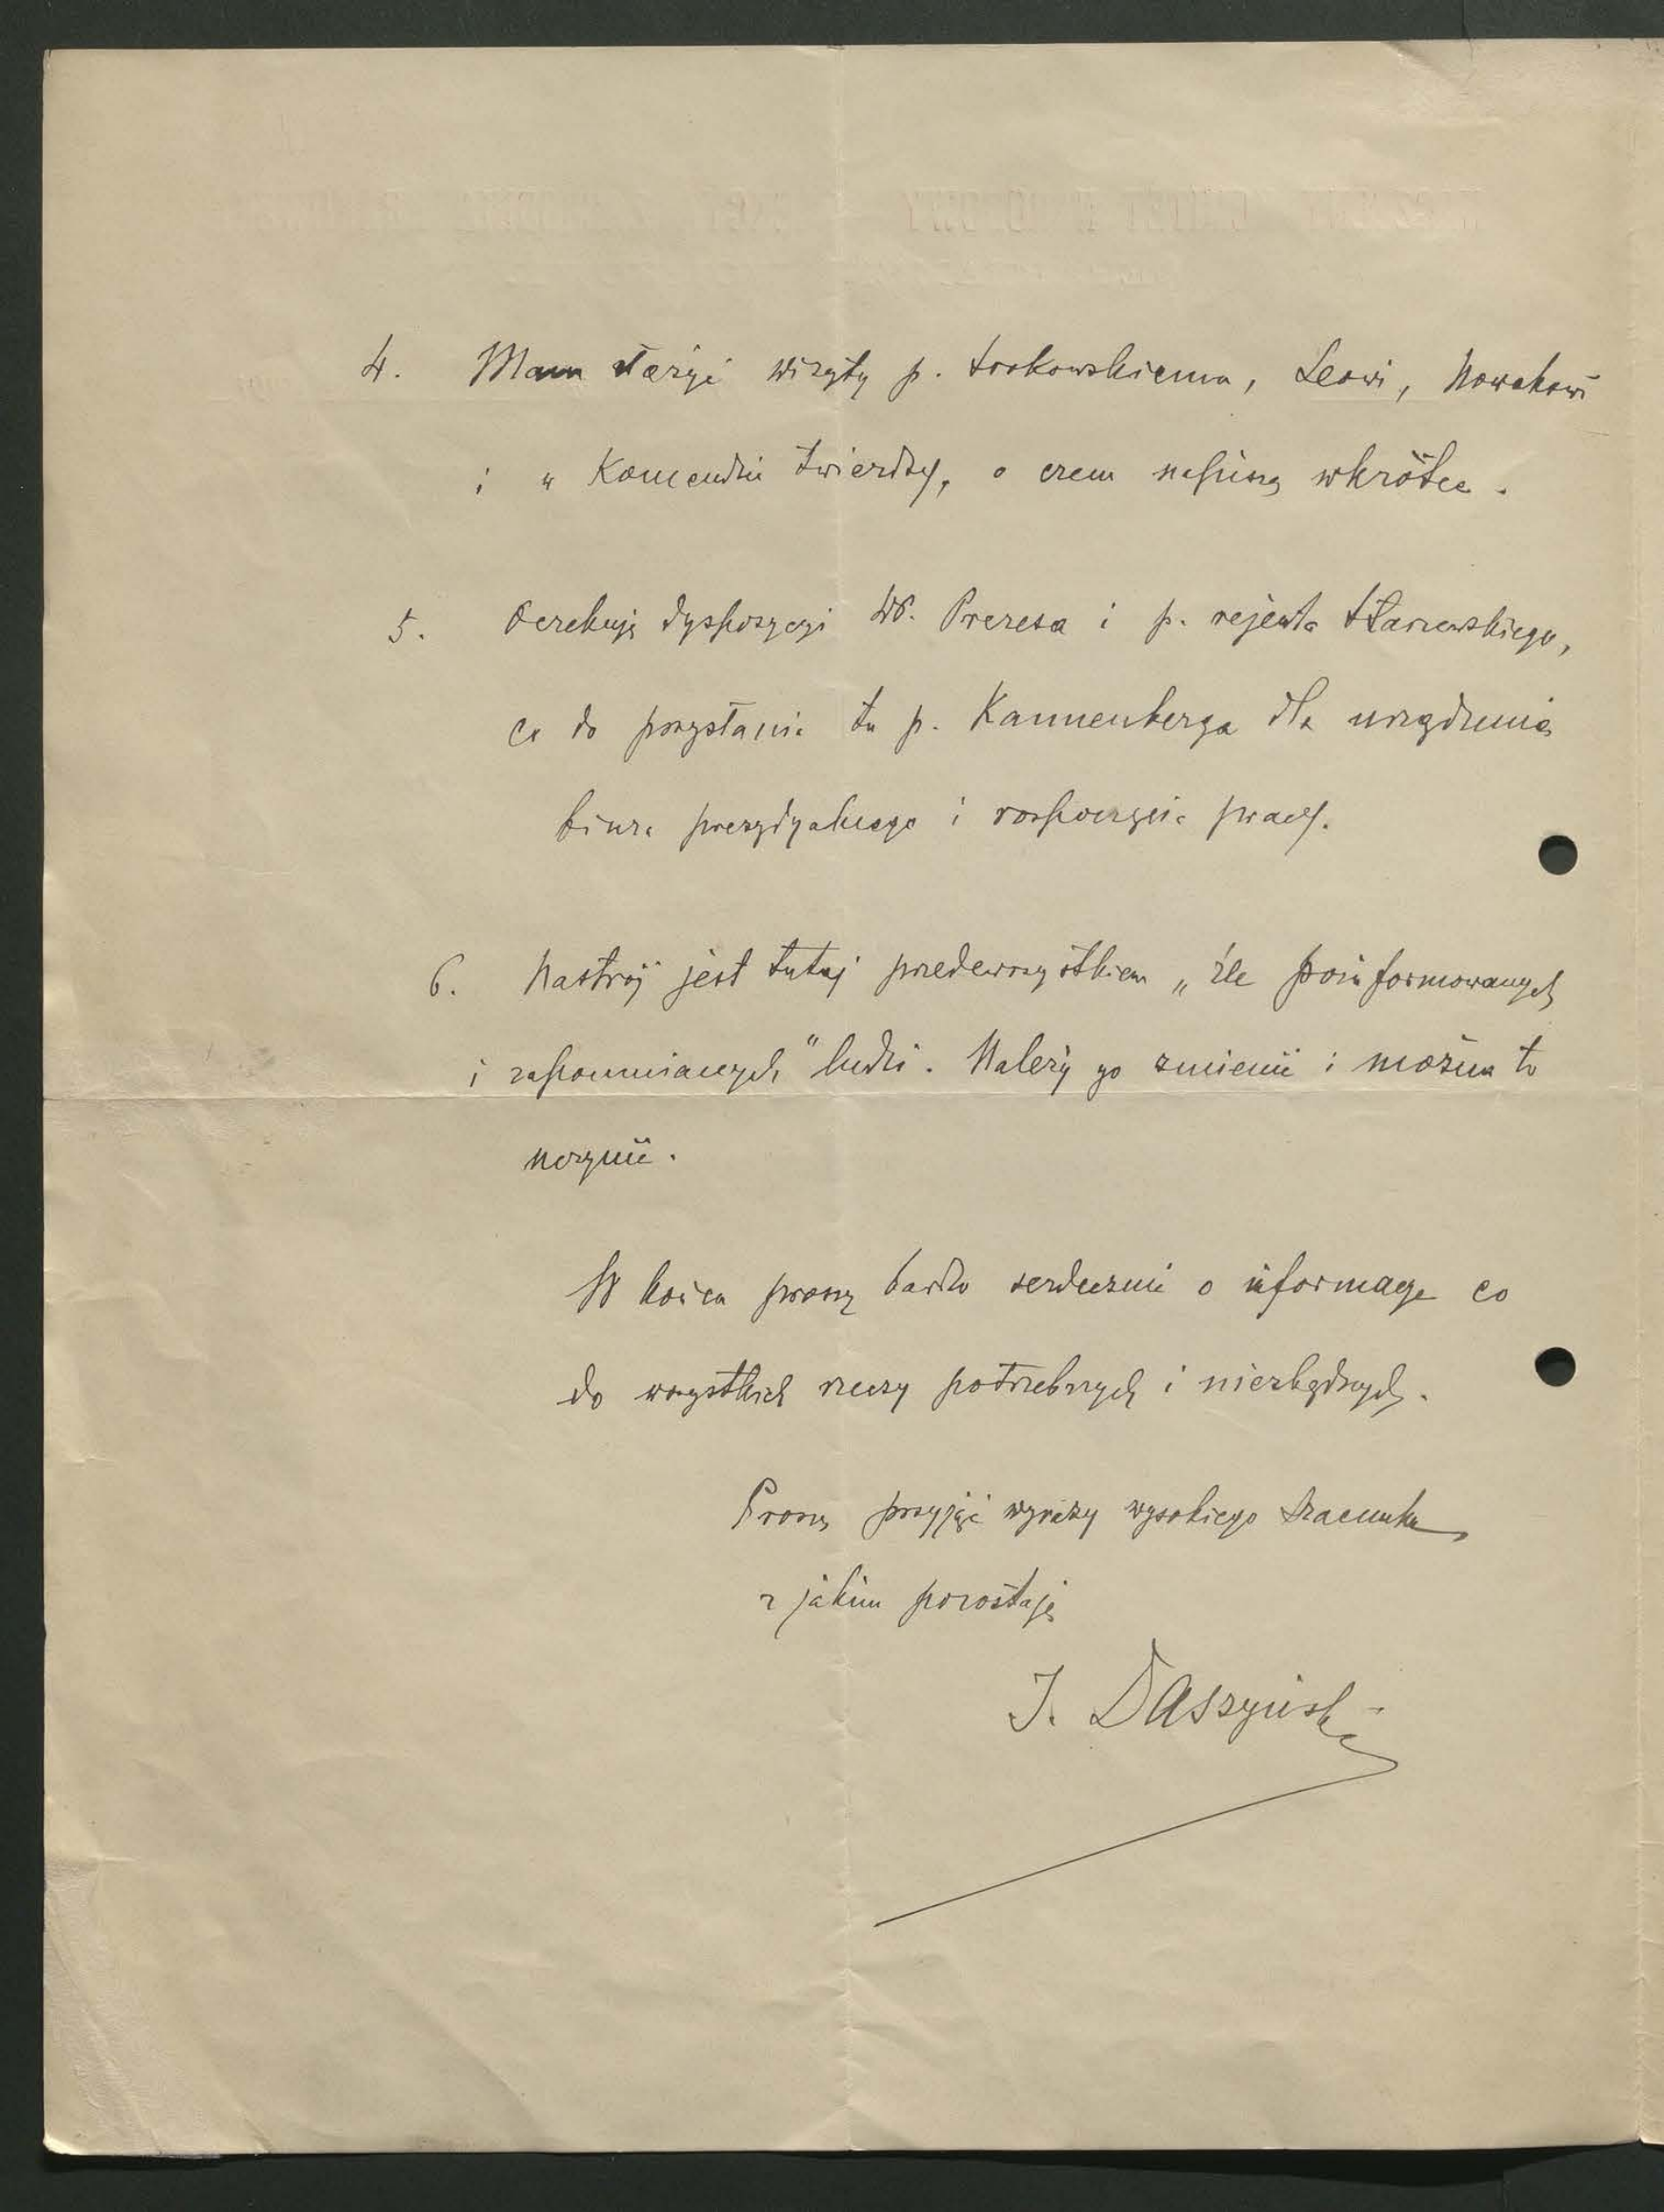 4. Mam złożyć wizyty p. Srokowskiemu, Leowi, Nowakowi
i w Komendzie twierdzy, o czem napiszę wkrótce.
5. Oczekuję dyspozycyi W. Prezesa i p. rejenta
co do przysłania tu p. Kannenberga dla urządzenia
biura prezydyalnego i rozpoczęcia pracy.
6. Nastrój jest tutaj przedewszystkiem „źle poinformowanych
i zapomnianych" ludzi. Należy go zmienić i można to
uczynić.
W końcu proszę bardzo serdecznie o informacye co
do wszystkich rzeczy potrzebnych i niezbędnych.
Proszę przyjąć wyrazy wysokiego szacunku
z jakim pozostaję
I. Daszyński